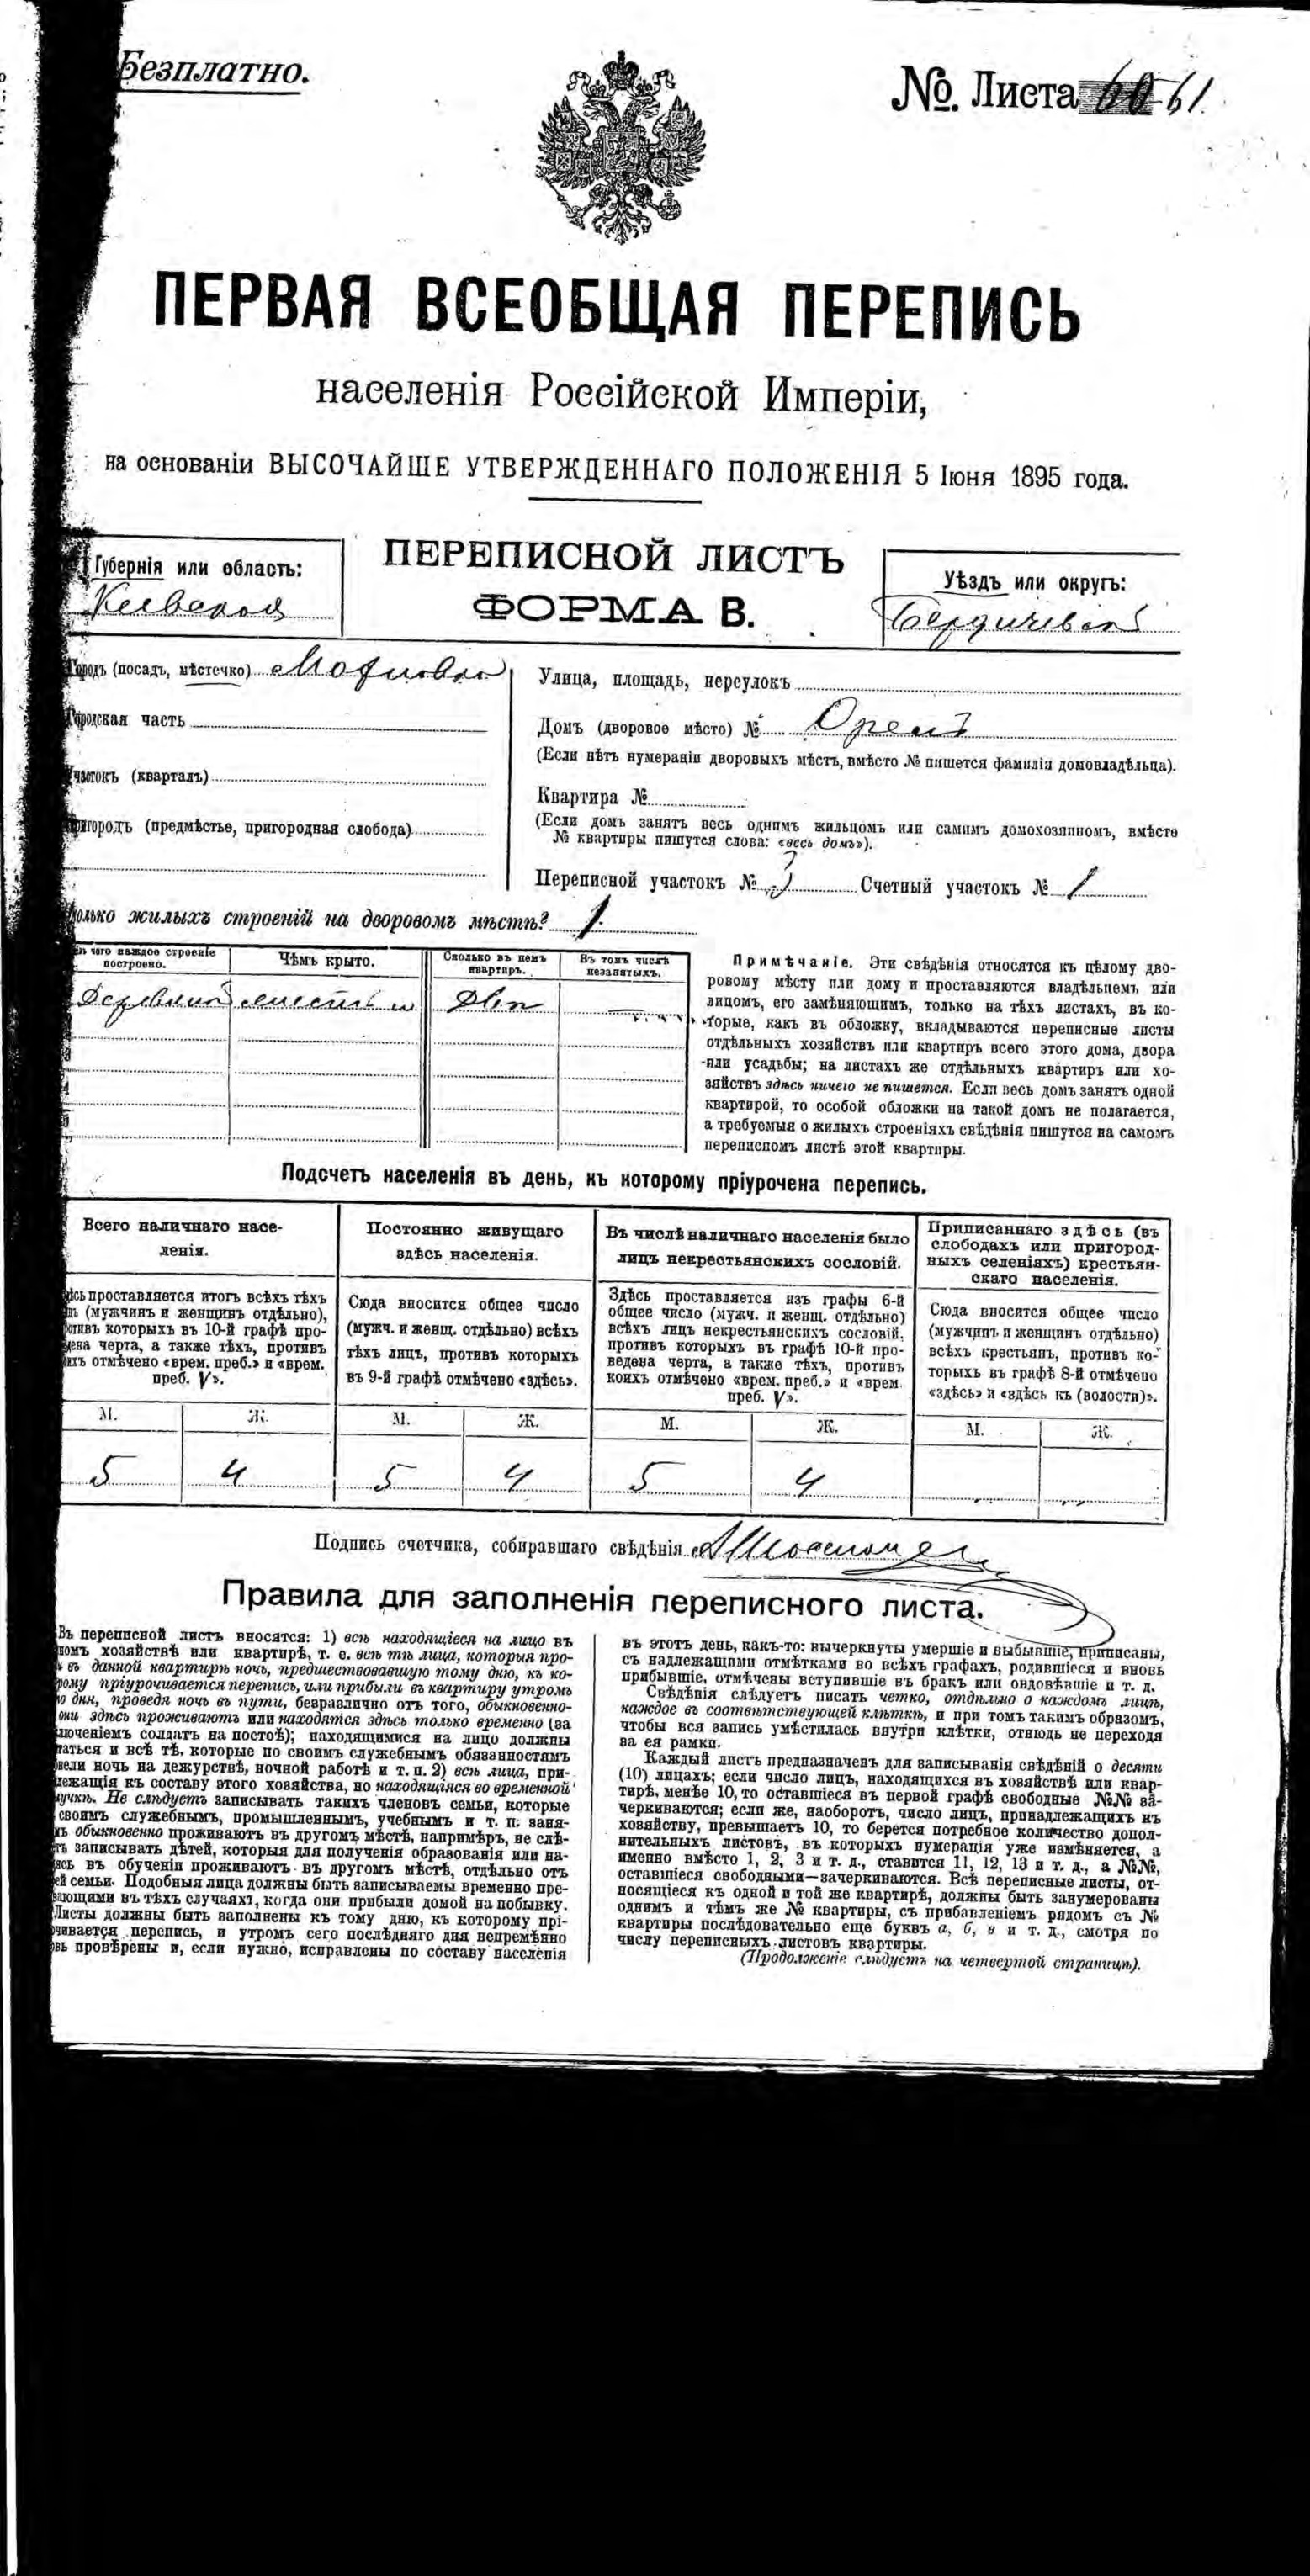 Безплатно.
№. Листа 61
ПЕРВАЯ ВСЕОБЩАЯ ПЕРЕПИСЬ
населенія Россійской Имперіи,
на основаніи ВЫСОЧАЙШЕ УТВЕРЖДЕННАГО ПОЛОЖЕНІЯ 5 Іюня 1895 года.
ПЕРЕПИСНОЙ ЛИСТЪ
ФОРМА В.
Губернія или область:
Кіевская
Уѣздъ или округъ:
Бердичевскій
Городъ (посадъ, мѣстечко)
Городская часть
Участокъ (кварталъ)
Пригородъ (предмѣстье, пригородная слобода)
Улица, площадь, переулокъ
Домъ (дворовое мѣсто) №
(Если нѣтъ нумераціи дворовыхъ мѣстъ, вмѣсто № пишется фамилія домовладѣльца).
Квартира №
(Если домъ занятъ весь однимъ жильцомъ или самимъ домохозяиномъ, вмѣсто
№ квартиры пишутся слова: «весь домъ»).
Переписной участокъ № 3 Счетный участокъ № 1
Сколько жилыхъ строеній на дворовомъ мѣстѣ? 1.
Изъ чего каждое строеніе
построено.
Чѣмъ крыто.
Сколько въ немъ
квартиръ.
Въ томъ числѣ
незанятыхъ.
двѣ
Примѣчаніе. Эти свѣдѣнія относятся къ цѣлому дво-
ровому мѣсту или дому и проставляются владѣльцемъ или
лицомъ, его замѣняющимъ, только на тѣхъ листахъ, въ ко-
торые, какъ въ обложку, вкладываются переписные листы
отдѣльныхъ хозяйствъ или квартиръ всего этого дома, двора
или усадьбы; на листахъ же отдѣльныхъ квартиръ или хо-
зяйствъ здѣсь ничего не пишется. Если весь домъ занятъ одной
квартирой, то особой обложки на такой домъ не полагается,
а требуемыя о жилыхъ строеніяхъ свѣдѣнія пишутся на самомъ
переписномъ листѣ этой квартиры.
Подсчетъ населенія въ день, къ которому пріурочена перепись.
Всего наличнаго насе-
ленія.
Здѣсь проставляется итогъ всѣхъ тѣхъ
лицъ (мужчинъ и женщинъ отдѣльно),
противъ которыхъ въ 10-й графѣ про-
ведена черта, а также тѣхъ, противъ
коихъ отмѣчено «врем. преб.» и «врем.
преб. V».
Постоянно живущаго
здѣсь населенія.
Сюда вносится общее число
(мужч. и женщ. отдѣльно) всѣхъ
тѣхъ лицъ, противъ которыхъ
въ 9-й графѣ отмѣчено «здѣсь».
Въ числѣ наличнаго населенія было
лицъ некрестьянскихъ сословій.
Здѣсь проставляется изъ графы 6-й
общее число (мужч. и женщ. отдѣльно)
всѣхъ лицъ некрестьянскихъ сословій,
противъ которыхъ въ графѣ 10-й про-
ведена черта, а также тѣхъ, противъ
коихъ отмѣчено «врем. преб.» и «врем.
преб. V».
Приписаннаго здѣсь (въ
слободахъ или пригород-
ныхъ селеніяхъ) крестьян-
скаго населенія.
Сюда вносится общее число
(мужчинъ и женщинъ отдѣльно)
всѣхъ крестьянъ, противъ ко-
торыхъ въ графѣ 8-й отмѣчено
«здѣсь» и «здѣсь къ (волости)».
М. Ж. М. Ж. М. Ж. М. Ж.
5 4 5 4 5 4
Подпись счетчика, собиравшаго свѣдѣнія
Правила для заполненія переписного листа.
Въ переписной листъ вносятся: 1) всѣ находящіеся на лицо въ
номъ хозяйствѣ или квартирѣ, т. е. всѣ тѣ лица, которыя про-
и въ данной квартирѣ ночь, предшествовавшую тому дню, къ ко-
рому пріурочивается перепись, или прибыли въ квартиру утромъ
о дня, проведя ночь въ пути, безразлично отъ того, обыкновенно-
они здѣсь проживаютъ или находятся здѣсь только временно (за
люченіемъ солдатъ на постоѣ); находящимися на лицо должны
таться и всѣ тѣ, которые по своимъ служебнымъ обязанностямъ
вели ночь на дежурствѣ, ночной работѣ и т. п. 2) всѣ лица, при-
лежащія къ составу этого хозяйства, но находящіяся во временной
учкѣ. Не слѣдуетъ записывать такихъ членовъ семьи, которые
своимъ служебнымъ, промышленнымъ, учебнымъ и т. п. заня-
ъ обыкновенно проживаютъ въ другомъ мѣстѣ, напримѣръ, не слѣ-
тъ записывать дѣтей, которыя для полученія образованія или на-
ясь въ обученіи проживаютъ въ другомъ мѣстѣ, отдѣльно отъ
ей семьи. Подобныя лица должны быть записываемы временно пре-
вающими въ тѣхъ случаяхъ, когда они прибыли домой на побывку.
Листы должны быть заполнены къ тому дню, къ которому прі-
чивается перепись, и утромъ сего послѣдняго дня непремѣнно
вь провѣрены и, если нужно, исправлены по составу населенія
въ этотъ день, какъ-то: вычеркнуты умершіе и выбывшіе, приписаны,
съ надлежащими отмѣтками во всѣхъ графахъ, родившіеся и вновь
прибывшіе, отмѣчены вступившіе въ бракъ или овдовѣвшіе и т. д.
Свѣдѣнія слѣдуетъ писать четко, отдѣльно о каждомъ лицѣ,
каждое въ соотвѣтствующей клѣткѣ, и при томъ такимъ образомъ,
чтобы вся запись умѣстилась внутри клѣтки, отнюдь не переходя
за ея рамки.
Каждый листъ предназначенъ для записыванія свѣдѣній о десяти
(10) лицахъ; если число лицъ, находящихся въ хозяйствѣ или квар-
тирѣ, менѣе 10, то оставшіеся въ первой графѣ свободные №№ за-
черкиваются; если же, наоборотъ, число лицъ, принадлежащихъ къ
хозяйству, превышаетъ 10, то берется потребное количество допол-
нительныхъ листовъ, въ которыхъ нумерація уже измѣняется, а
именно вмѣсто 1, 2, 3 и т. д., ставится 11, 12, 13 и т. д., а №№,
оставшіеся свободными—зачеркиваются. Всѣ переписные листы, от-
носящіеся къ одной и той же квартирѣ, должны быть занумерованы
однимъ и тѣмъ же № квартиры, съ прибавленіемъ рядомъ съ №
квартиры послѣдовательно еще буквъ а, б, в и т. д., смотря по
числу переписныхъ листовъ квартиры.
(Продолженіе слѣдуетъ на четвертой страницѣ).